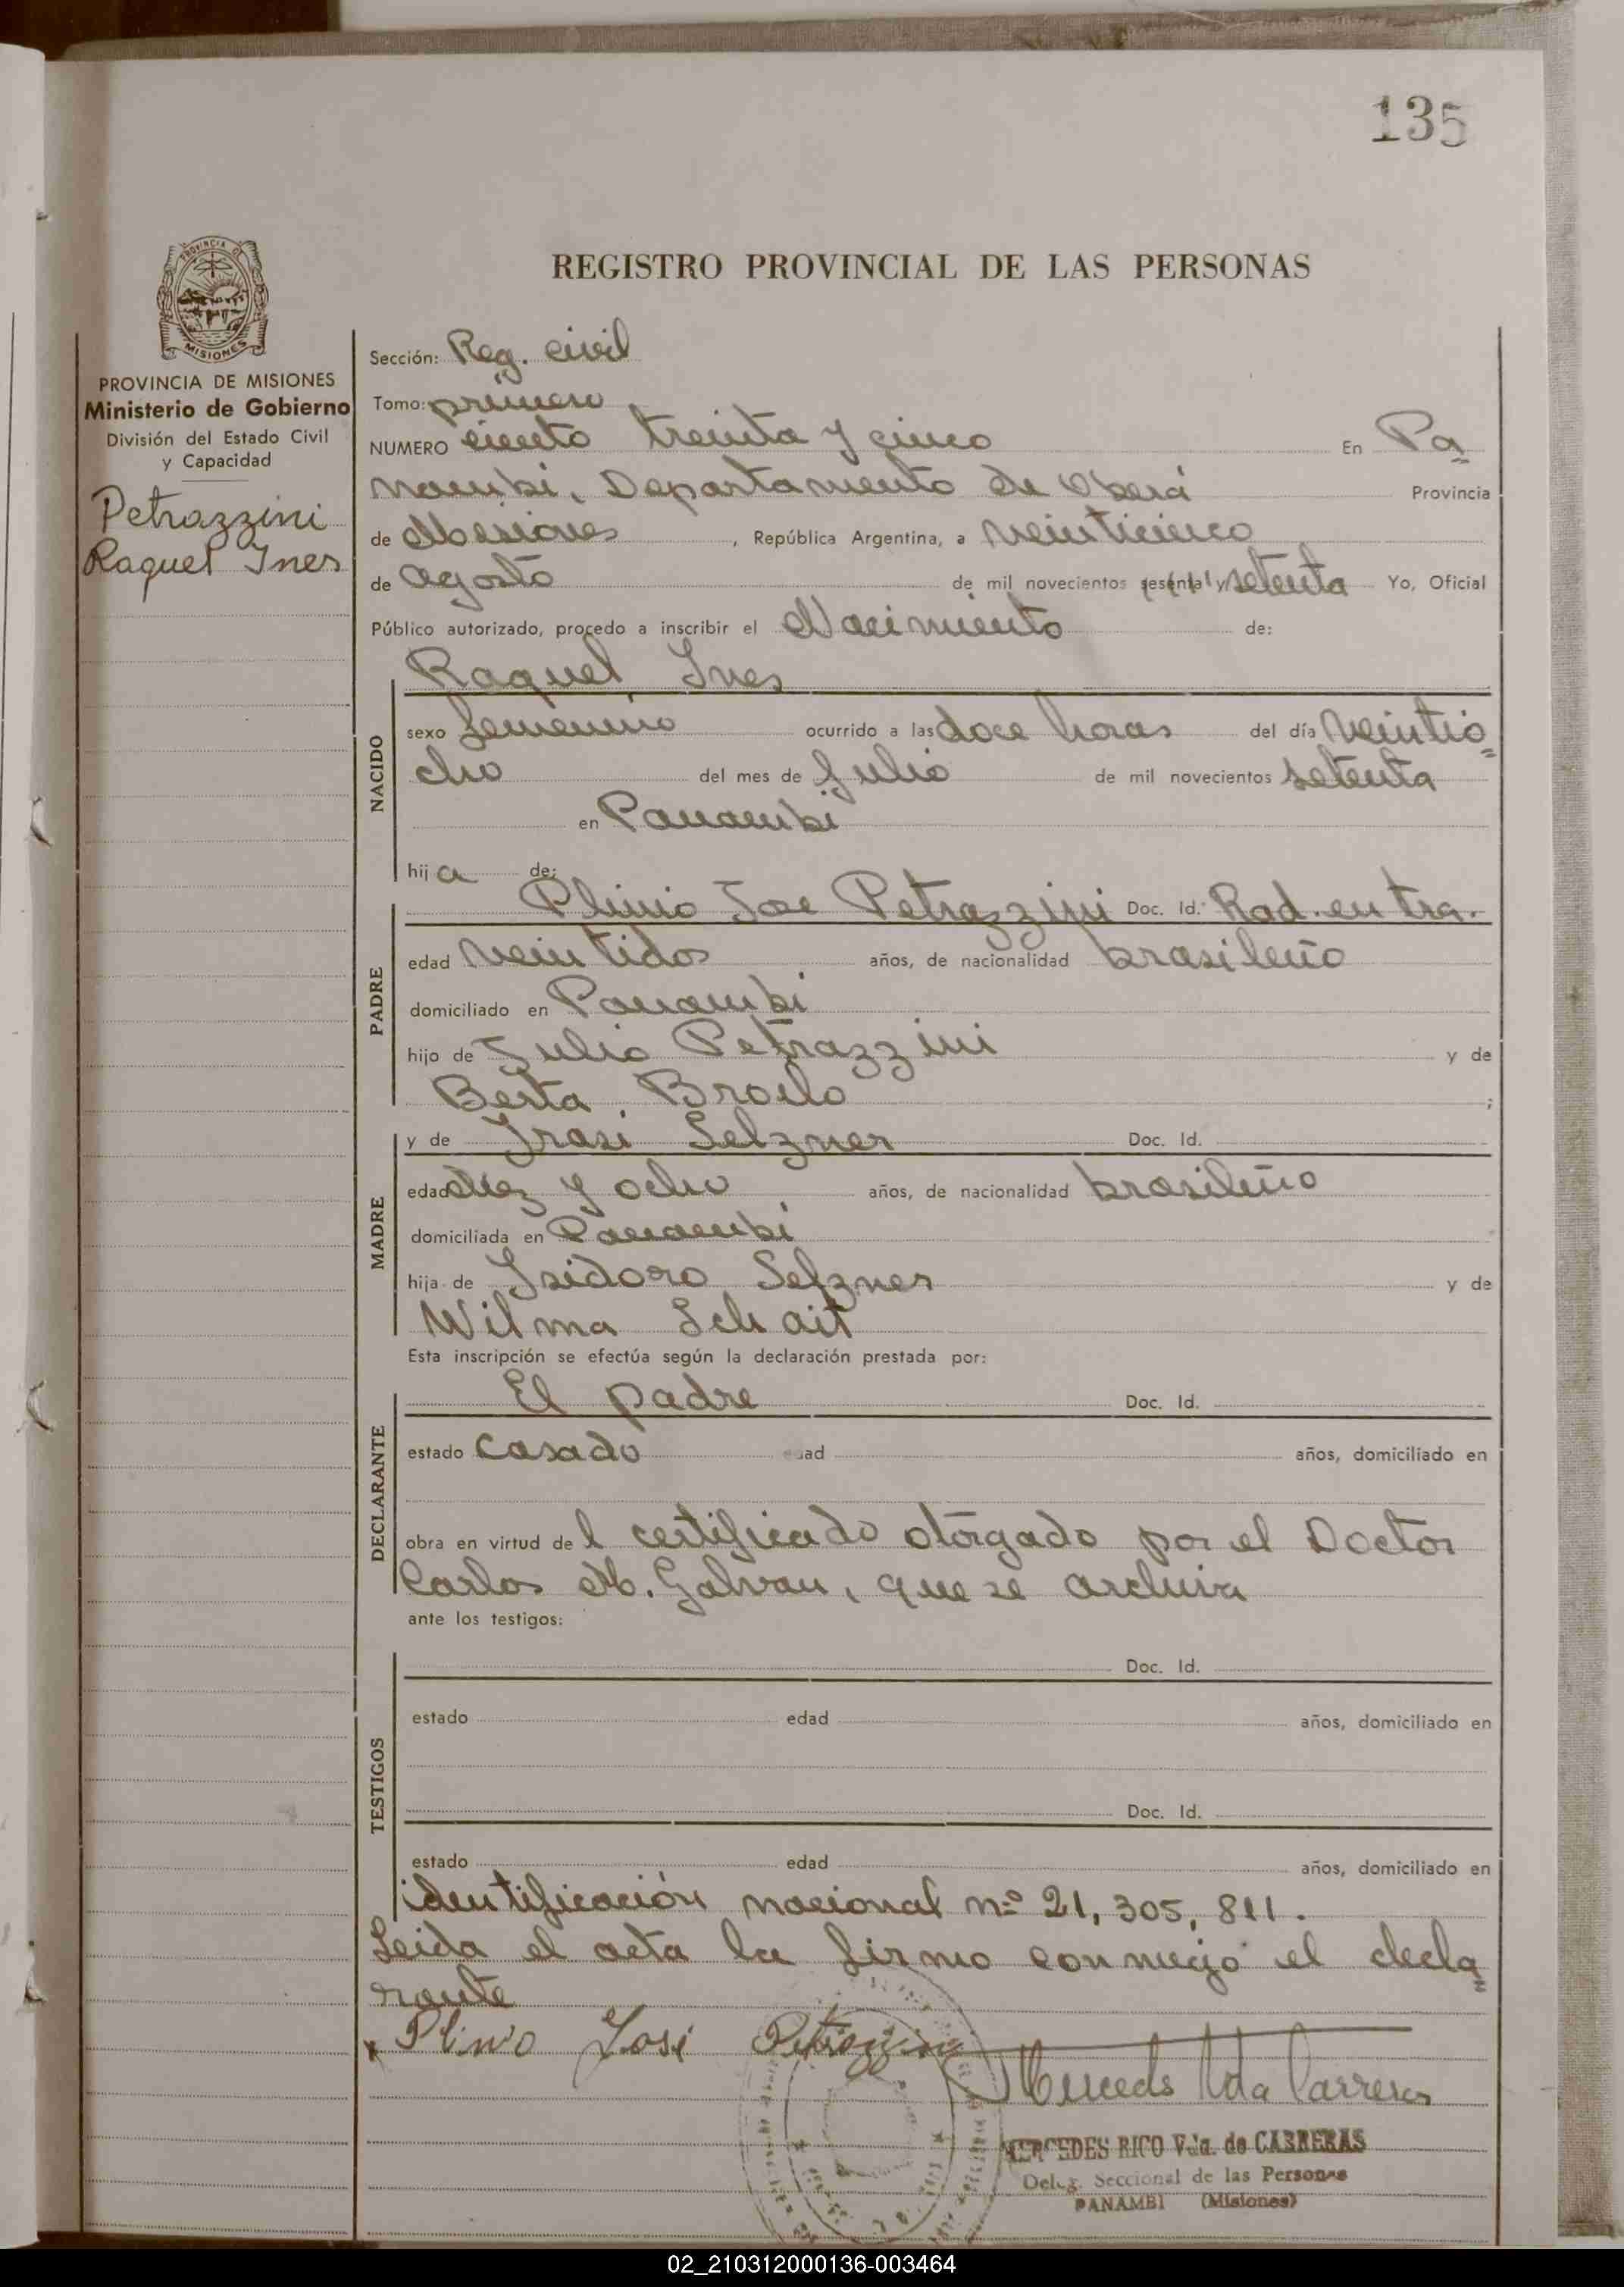 135
PROVINCIA DE
MISIONES
REGISTRO PROVINCIAL DE LAS PERSONAS
PROVINCIA DE MISIONES
Ministerio de Gobierno
División del Estado Civil
y Capacidad
Petrazzini
Raquel Ines
Sección: Reg. civil
Tomo: primero
NUMERO ciento treinta y cinco En Pa
nambi, Departamento de Oberá Provincia
de Misiones, República Argentina, a veinticinco
de agosto de mil novecientos sesenta y setenta Yo, Oficial
Público autorizado, procedo a inscribir el Nacimiento de:
Raquel Ines
NACIDO
sexo femenino ocurrido a las doce horas del día veintio=
cho del mes de Julio de mil novecientos setenta
en Panambi
hija de:
PADRE
Plinio Jose Petrazzini Doc. Id: Rad. en tra.
edad veintidos años, de nacionalidad brasileño
domiciliado en Panambi
hijo de Julio Petrazzini y de
Berta Broilo ;
MADRE
y de Irasi Selzner Doc. Id.
edad diez y ocho años, de nacionalidad brasileño
domiciliada en Panambi
hija de Isidoro Selzner y de
Wilma Schait
Esta inscripción se efectúa según la declaración prestada por:
DECLARANTE
El padre Doc. Id.
estado casado edad años, domiciliado en
obra en virtud del certificado otorgado por el Doctor
Carlos M. Galvan, que se archiva
ante los testigos:
TESTIGOS
Doc. Id.
estado edad años, domiciliado en
Doc. Id.
estado edad años, domiciliado en
identificación nacional nº 21,305,811.
Leida el acta la firmo conmigo el decla=
rante
Plinio José Petrazzini
Mercedes Vda Carreras
MERCEDES RICO Vda. de CARRERAS
Deleg. Seccional de las Personas
PANAMBI (Misiones)
02_210312000136-003464